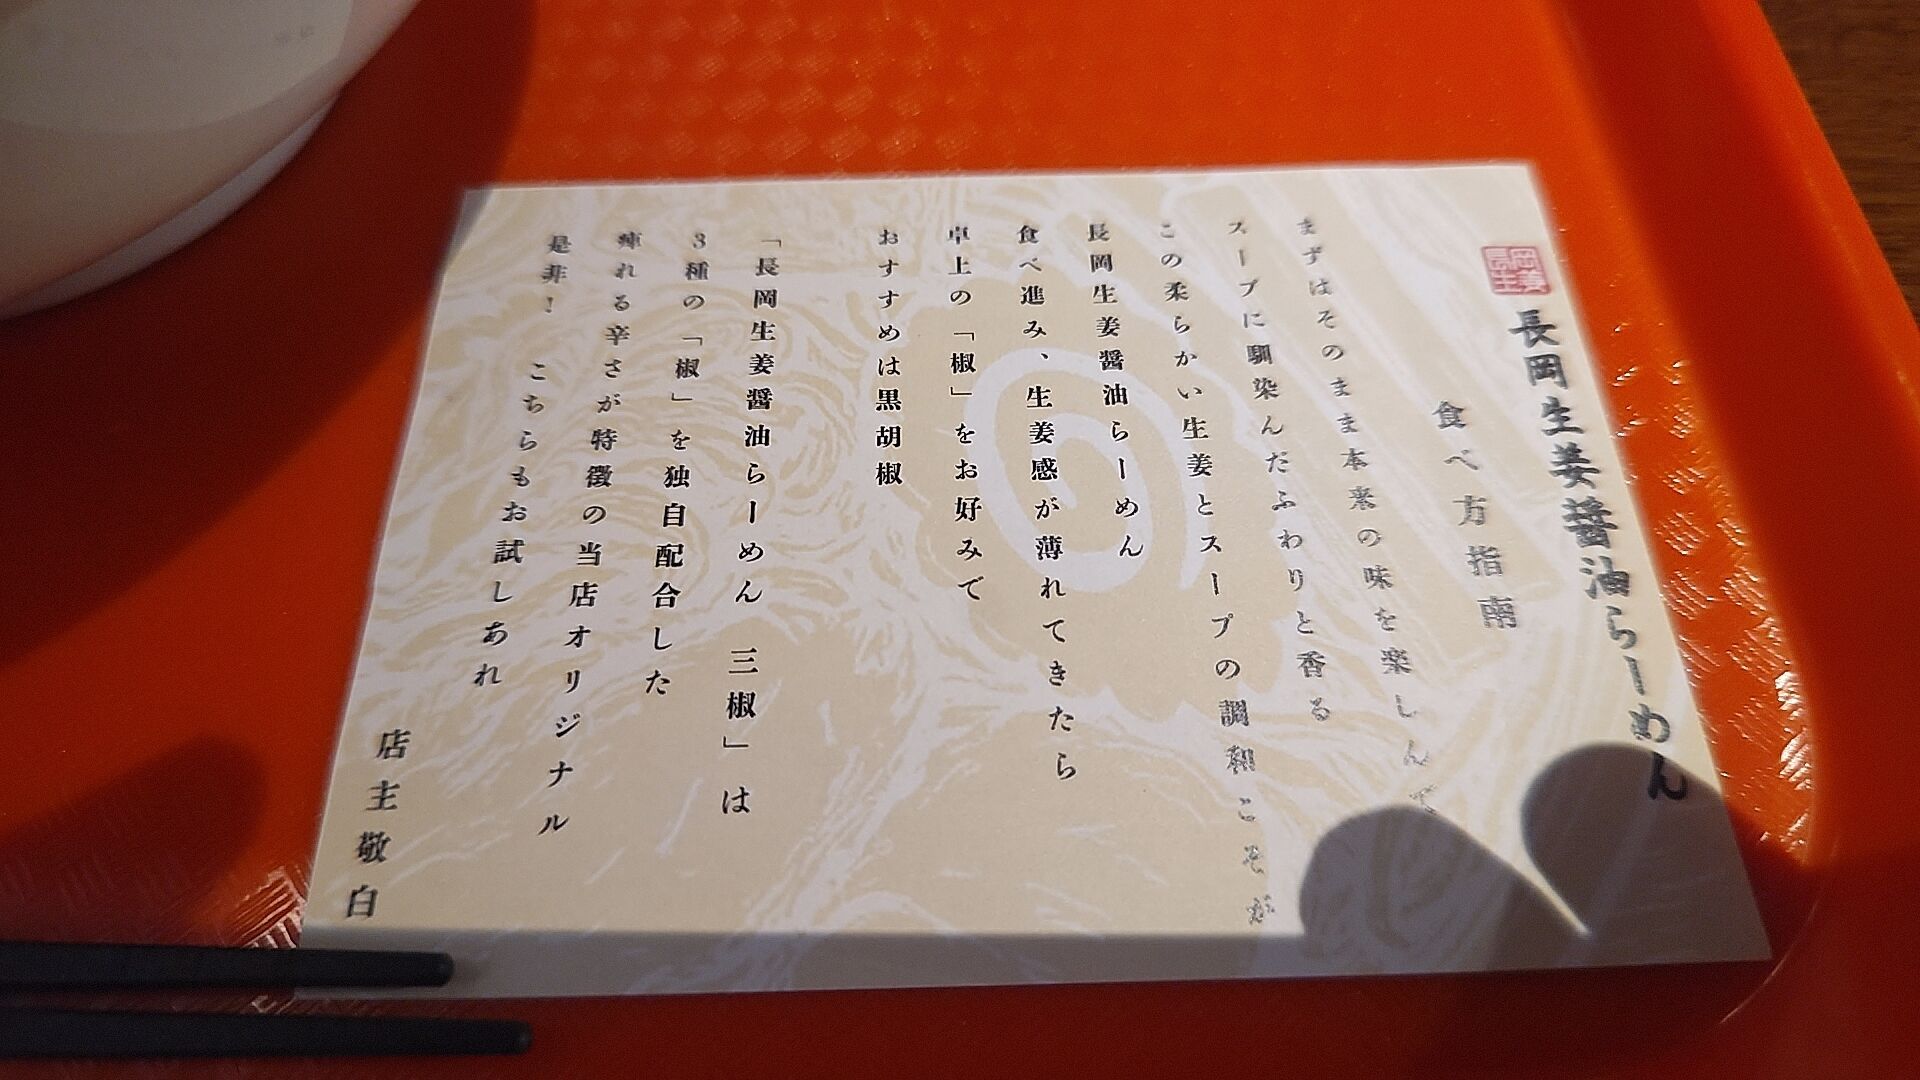 長岡生姜
長岡生姜醤油らーめん
食べ方指南
まずはそのまま本来の味を楽しんで
スープに馴染んだふわりと香る
この柔らかい生姜とスープの調和こそが
長岡生姜醤油らーめん
食べ進み、生姜感が薄れてきたら
卓上の「椒」をお好みで
おすすめは黒胡椒
「長岡生姜醤油らーめん 三椒」は
3種の「椒」を独自配合した
痺れる辛さが特徴の当店オリジナル
是非! こちらもお試しあれ
店主敬白